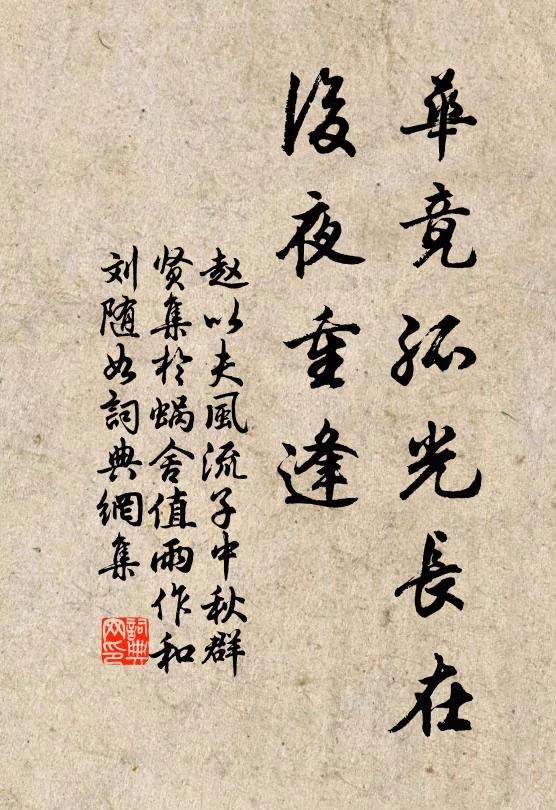 華竟孤光長在
後夜重逢
赵以夫風流子中秋群
贤集於蜗舍值雨作和
刘随如詞典網集
詞典網印